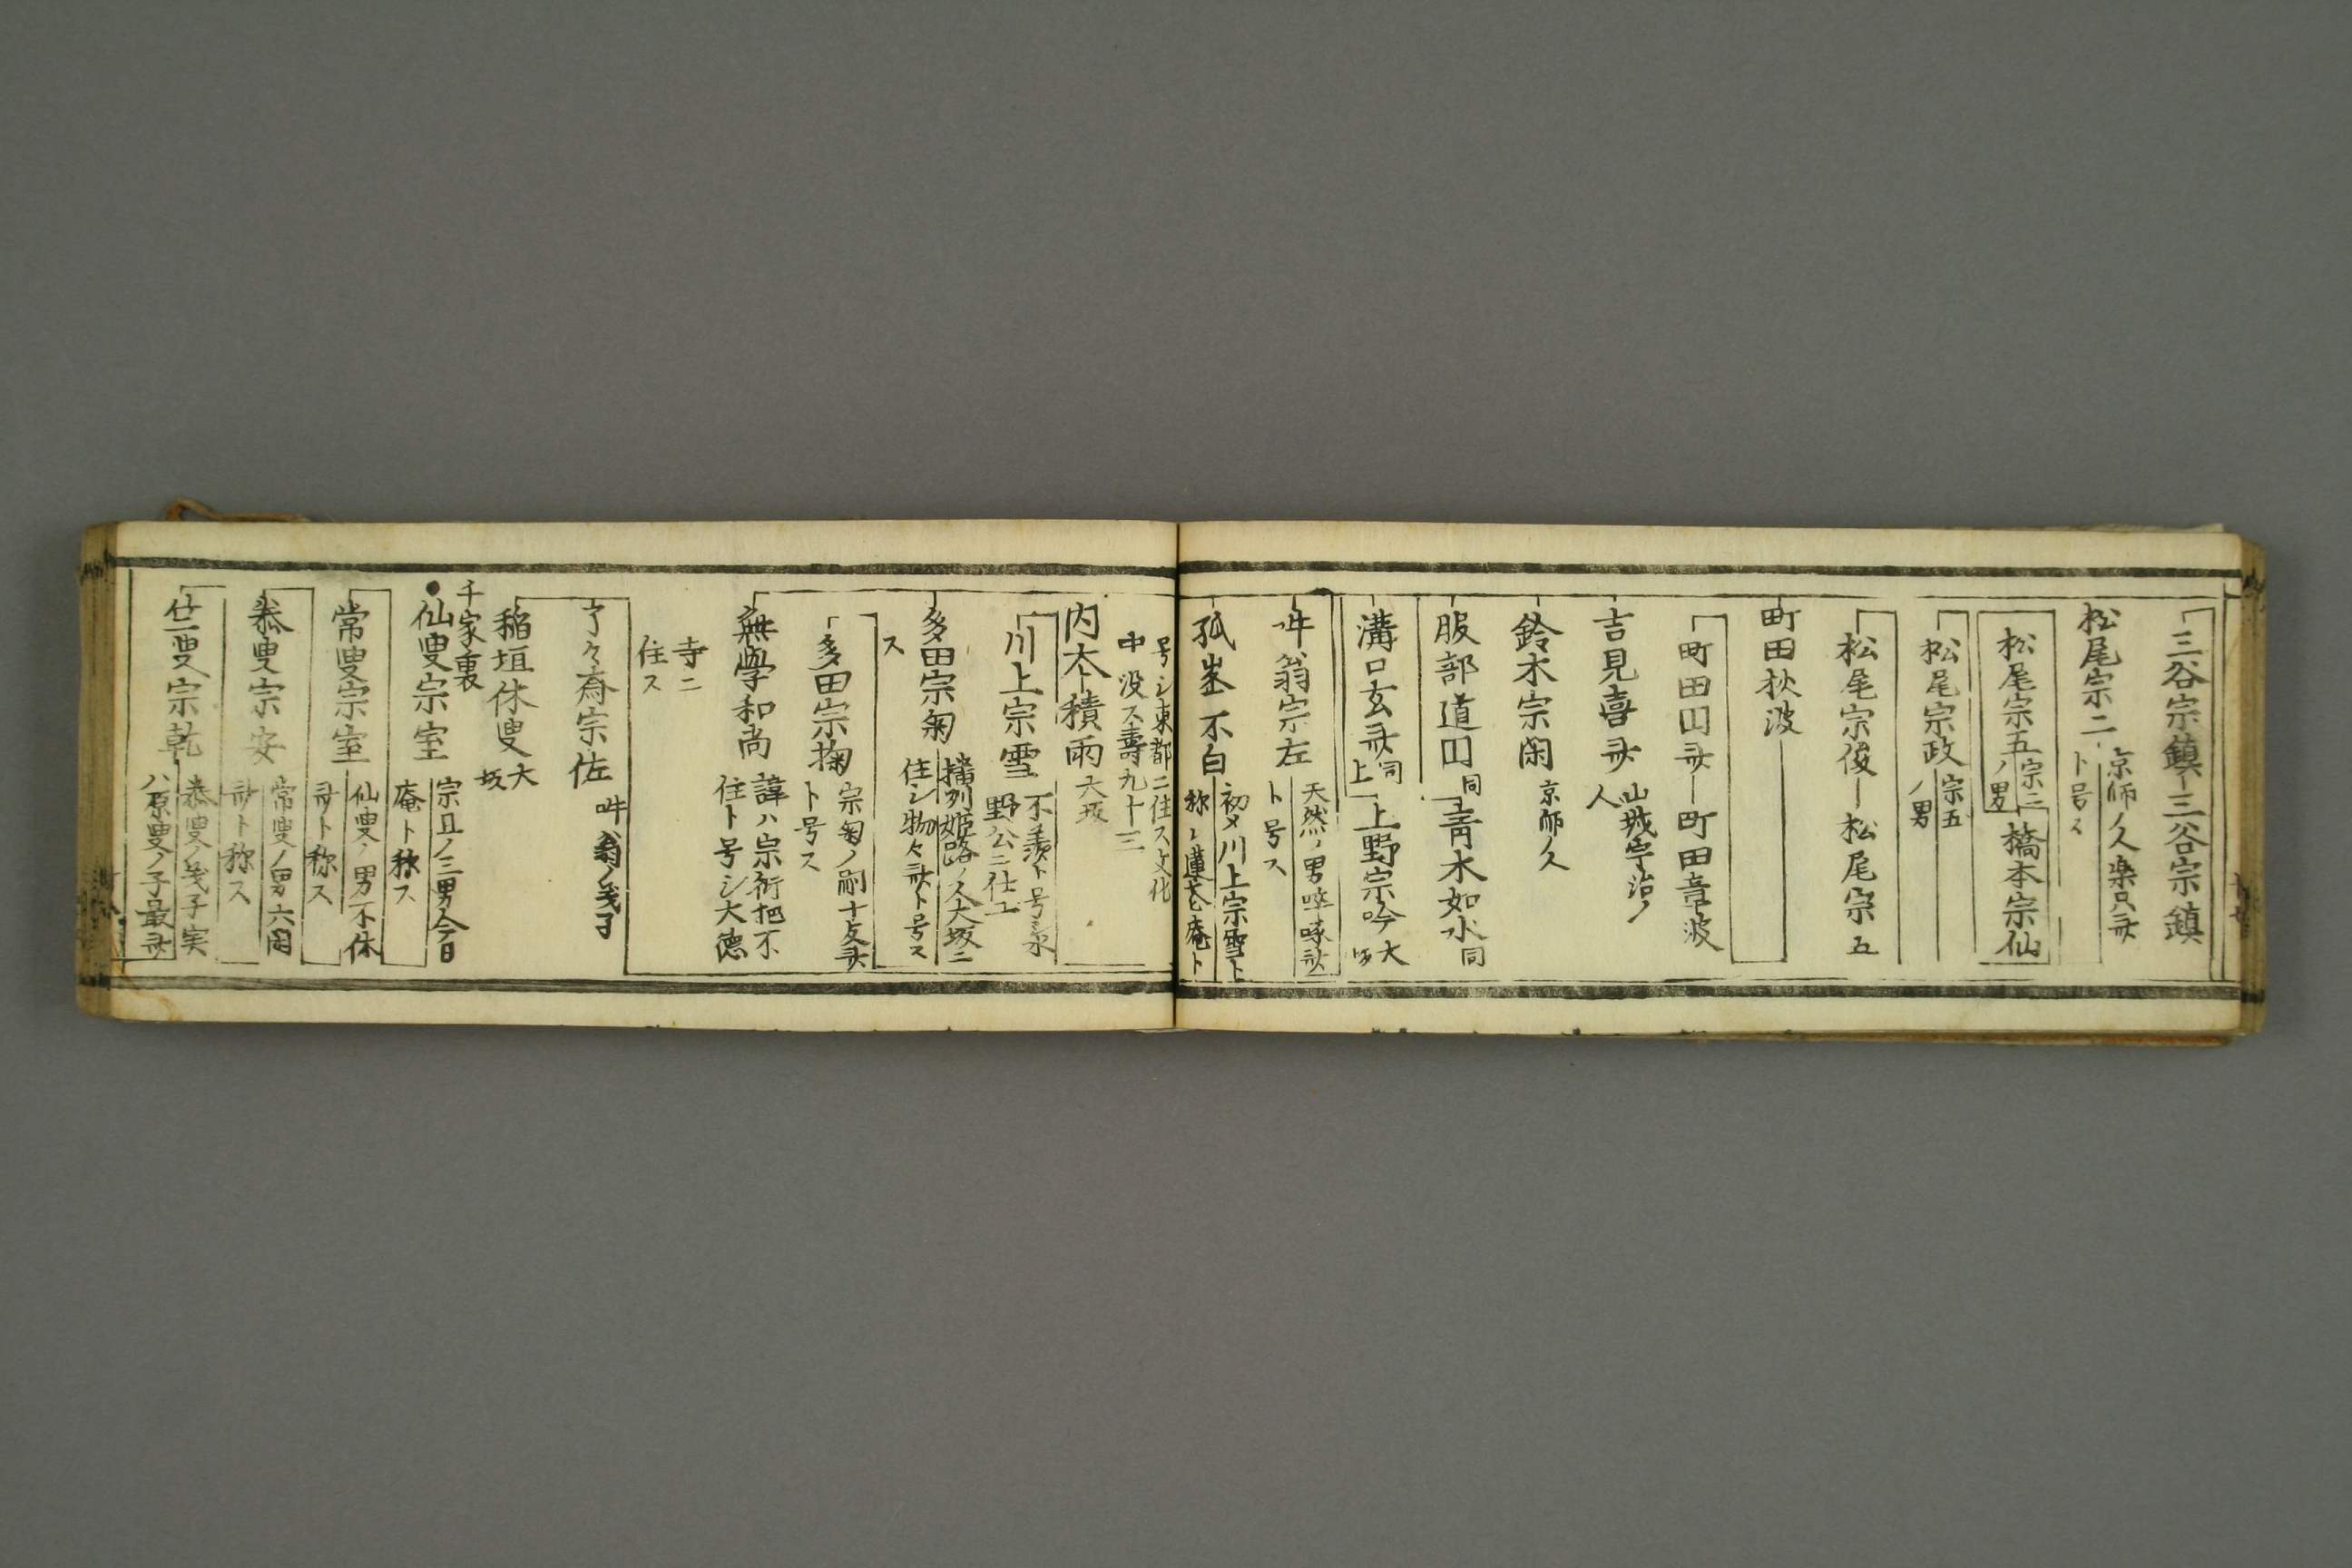 三谷宗鎮―三谷宗鎮
松尾宗二 京師ノ人楽只斎
ト号ス
松尾宗五 宗二
ノ男
橋本宗仙
松尾宗政 宗五
ノ男
松尾宗俊―松尾宗五
町田秋波
町田囗斎―町田章波
吉見喜斎 山城宇治ノ
人
鈴木宗閑 京師ノ人
服部道囗 同
青木如水 同
溝口玄斎 同
上
上野宗吟 大
坂
吽翁宗左 天然ノ男啐啄斎
ト号ス
孤峯不白 初メ川上宗雪ト
称シ蓮花庵ト
号シ東都ニ住ス文化
中没ス壽九十三
内本積雨 大坂
川上宗雪 不羨ト号シ水
野公ニ仕エ
多田宗菊 播州姫路ノ人大坂ニ
住シ物々斎ト号ス
ス
多田宗掬 宗菊ノ嗣十友斎
ト号ス
無學和尚 諱ハ宗衍把不
住ト号シ大德
寺ニ
住ス
了々斎宗佐 吽翁ノ義子
稲垣休叟 大
坂
千家裏
●仙叟宗室 宗旦ノ三男今日
庵ト称ス
常叟宗室 仙叟ノ男不休
斎ト称ス
泰叟宗安 常叟ノ男六閑
斎ト称ス
竺叟宗乾 泰叟ノ義子実
ハ原叟ノ子最斎